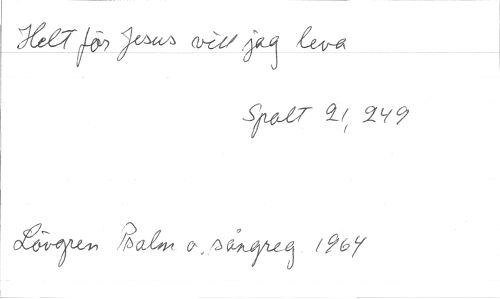 Helt för Jesus vill jag leva
Spalt 21, 249
Lövgren Psalm o. sångreg. 1964